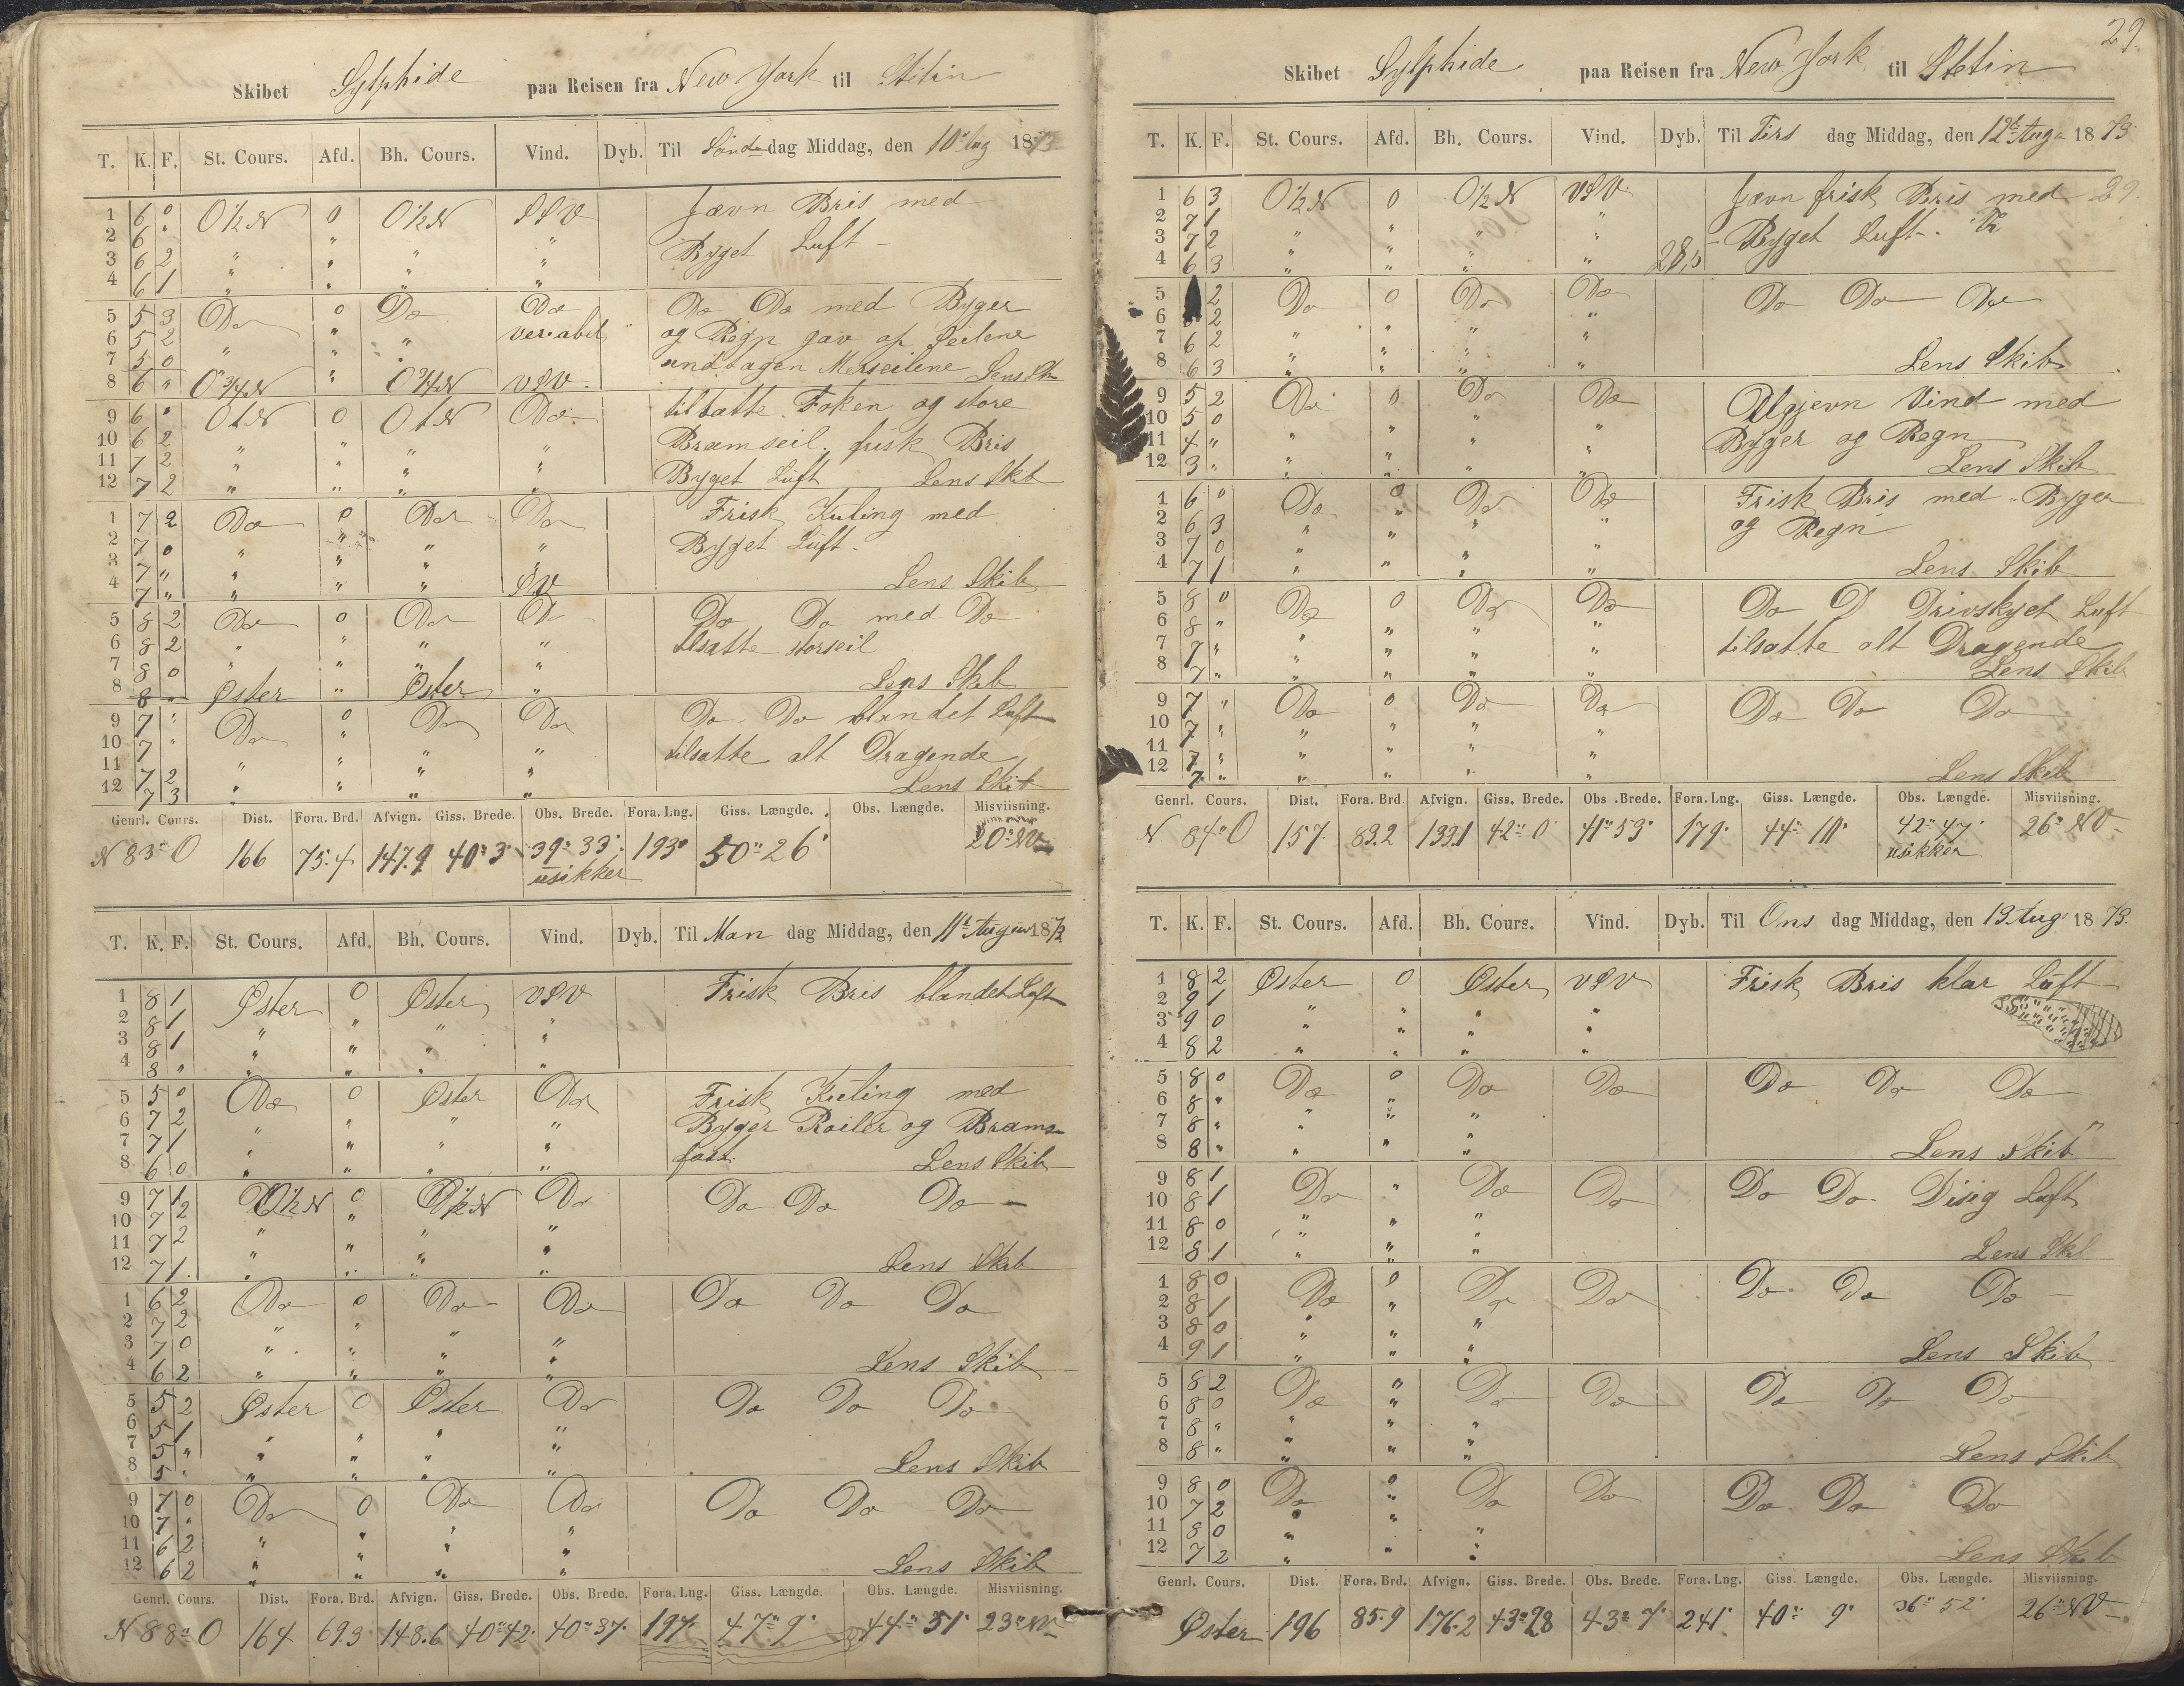 Skibet Sylphide paa Reisen fra New York til Stetin
T. K. F. St. Cours. Afd. Bh. Cours. Vind. Dyb. Til Sönda dag Middag, den 10 Aug 1873
1 6 0 O½N 0 O½N SSV Jævn Bris med
2 6 " " " " "
3 6 2 " " " " Byget Luft
4 6 1 " " " "
5 5 3 Do 0 Do Do Do Do med Byger
6 5 2 " " " veriabel og Regn gav op Seilene
7 5 0 " " " undtagen Merseilene Lens Sk
8 6 " O¾N " O¾N VSV
9 6 " OtN 0 OtN Do tilsatte Foken og store
10 6 2 " " " " Bramseil. frisk Bris
11 7 2 " " " "
12 7 2 " " " " Byget Luft Lens Skib
1 7 2 Do 0 Do Do Frisk Kuling med
2 7 0 " " " " Byget Luft
3 7 " " " " "
4 7 " " " " SV Lens Skib
5 8 2 Do 0 Do D Do Do med Do
6 8 2 " " " " tilsatte storseil
7 8 0 " " " "
8 8 " Øster " Øster " Lens Skib
9 7 " Do 0 Do Do Do Do blandet Luft
10 7 " " " " " tilsatte alt Dragende
11 7 2 " " " "
12 7 3 " " " " Lens Skib
Genrl. Cours. Dist. Fora. Brd. Afvign. Giss. Brede. Obs. Brede. Fora. Lng. Giss. Længde. Obs. Længde. Misviisning.
N 83° O 166 75.4 147.9 40° 3' 39° 33' 193' 50° 26' 20° NV
usikker
T. K. F. St. Cours. Afd. Bh. Cours. Vind. Dyb. Til Man dag Middag, den 11t August 1873
1 8 1 Øster 0 Øster VSV Frisk Bris blandet Luft
2 8 1 " " " "
3 8 1 " " " "
4 8 " " " " "
5 5 0 Do 0 Øster Do Frisk Kuling med
6 7 2 " " " " Byger Roiler og Brams
7 7 1 " " " " fast.
8 6 0 " " " " Lens Skib
9 7 1 O½N 0 O½N Do Do Do Do
10 7 2 " " " "
11 7 2 " " " "
12 7 1 " " " " Lens Skib
1 6 2 Do 0 Do Do Do Do Do
2 7 2 " " " "
3 7 0 " " " "
4 6 2 " " " " Lens Skib
5 5 2 Øster 0 Øster Do Do Do Do
6 5 1 " " " "
7 5 " " " " "
8 5 " " " " " Lens Skib
9 7 0 Do 0 Do Do Do Do Do
10 7 " " " " "
11 6 2 " " " "
12 6 2 " " " " Lens Skib
Genrl. Cours. Dist. Fora. Brd. Afvign. Giss. Brede. Obs. Brede. Fora. Lng. Giss. Længde. Obs. Længde. Misviisning.
N 88° O 164 69.3 148.6 40° 42' 40° 37' 197' 47° 9' 44° 51' 23° NV
29.
Skibet Sylphide paa Reisen fra New York til Stetin
T. K. F. St. Cours. Afd. Bh. Cours. Vind. Dyb. Til Tirs dag Middag, den 12t Aug 1873
1 6 3 O½N 0 O½N VSV Jævn frisk Bris med 29.
2 7 1 " " " "
3 7 2 " " " " Byget Luft.
4 6 3 " " " " 28,5
5 2 Do 0 Do Do Do Do Do
6 2 " " " "
7 6 2 " " " "
8 6 3 " " " " Lens Skib
9 5 2 Do 0 Do Do Ugjevn Vind med
10 5 0 " " " " Byger og Regn
11 4 " " " " "
12 3 " " " " " Lens Skib
1 6 0 Do 0 Do Do Frisk Bris med Byger
2 6 3 " " " " og Regn
3 7 0 " " " "
4 7 1 " " " " Lens Skib
5 8 0 Do 0 Do Do Do D Drivskyet Luft
6 8 " " " " " tilsatte alt Dragende
7 7 " " " " "
8 7 " " " " " Lens Skib
9 7 " Do 0 Do Do Do Do Do
10 7 " " " " "
11 7 " " " " "
12 7 " " " " " Lens Skib
Genrl. Cours. Dist. Fora. Brd. Afvign. Giss. Brede. Obs. Brede. Fora. Lng. Giss. Længde. Obs. Længde. Misviisning.
N 84° O 157 83.2 133.1 42° 0' 41° 53' 179' 44° 10' 42° 47' 26° NV
usikker
T. K. F. St. Cours. Afd. Bh. Cours. Vind. Dyb. Til Ons dag Middag, den 13 Aug 1873.
1 8 2 Øster 0 Øster VSV Frisk Bris klar Luft
2 9 1 " " " "
3 9 0 " " " "
4 8 2 " " " "
5 8 0 Do 0 Do Do Do Do Do
6 8 " " "
7 8 " " " "
8 8 " " " " Lens Skib
9 8 1 Do " Do Do Do Do Disig Luft
10 8 1
11 8 0 " " "
12 8 1 " " " Lens Skib
1 8 0 Do 0 Do Do Do Do Do
2 8 1 "
3 8 0 " " "
4 9 1 " " " Lens Skib
5 8 2 Do " Do Do Do Do Do
6 8 0 "
7 8 " " " "
8 8 " " " " Lens Skib
9 8 0 Do 0 Do Do Do Do Do
10 7 2 " "
11 8 0 " " "
12 7 2 " " Lens Skib
Genrl. Cours. Dist. Fora. Brd. Afvign. Giss. Brede. Obs. Brede. Fora. Lng. Giss. Længde. Obs. Længde. Misviisning.
Øster 196 85.9 176.2 43° 28 43° 7' 241' 40° 9' 36° 52' 26° NV